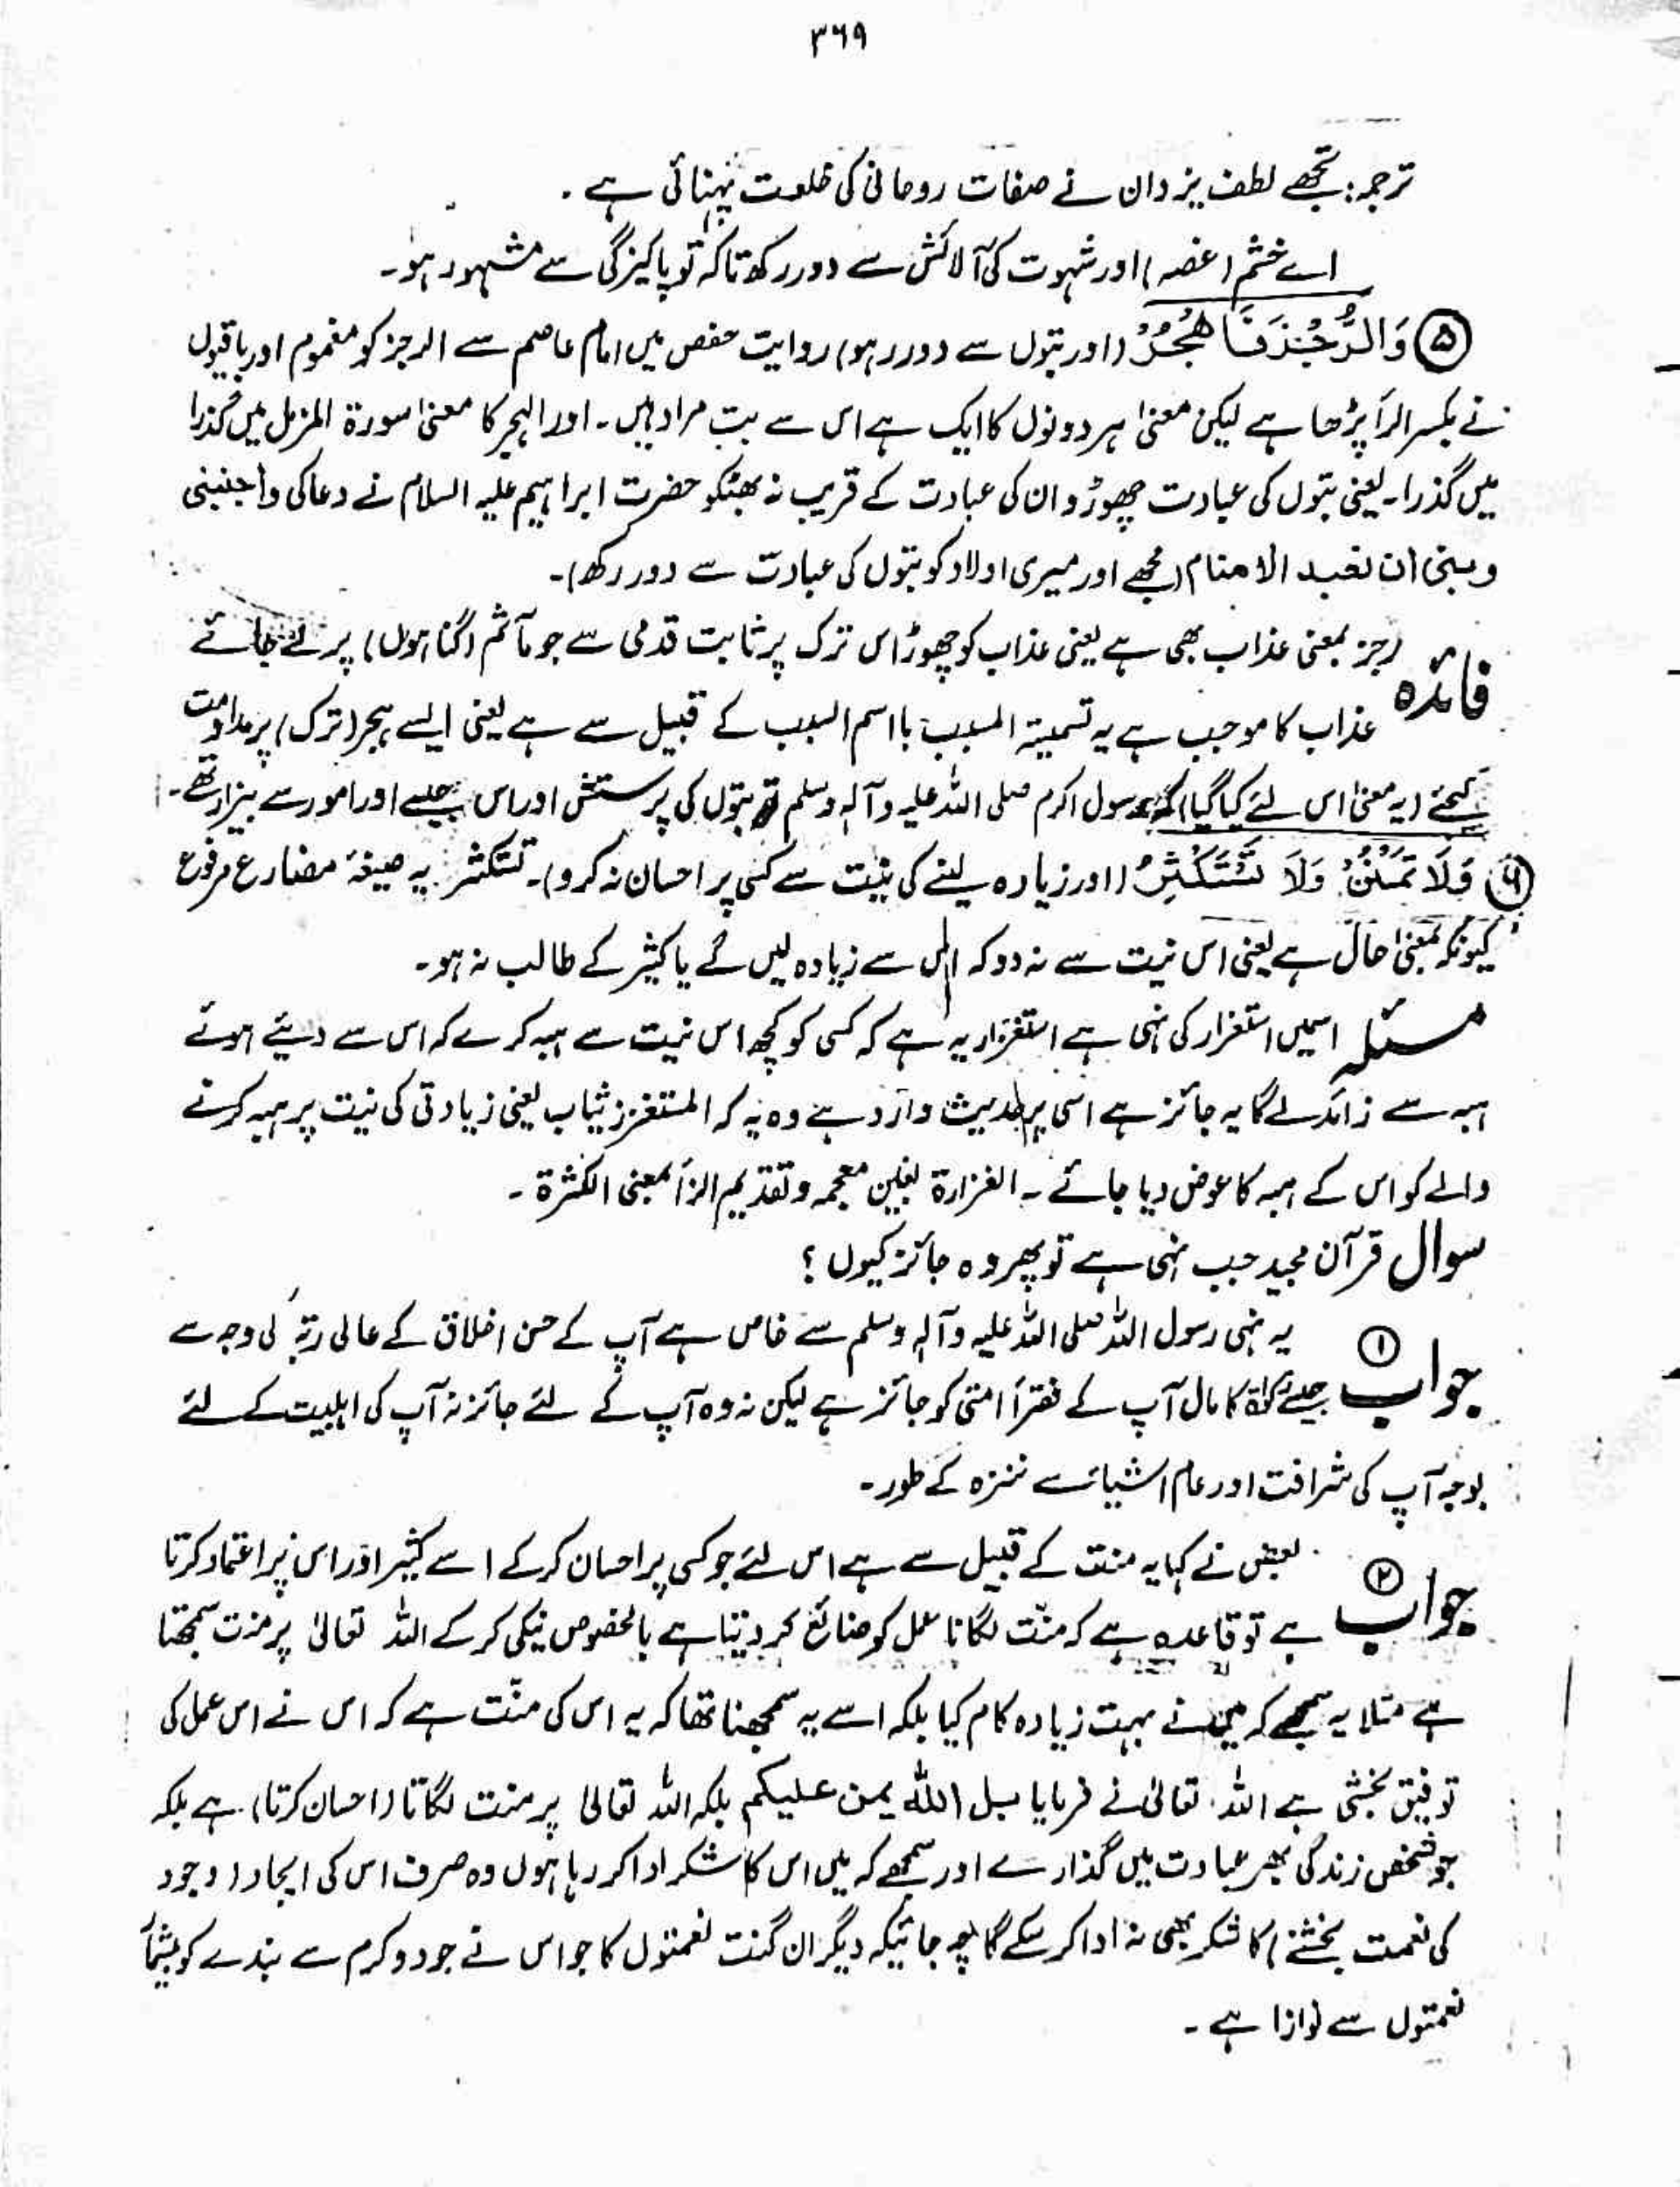 ۳۶۹
ترجمہ: تجھے لطف یزدان نے صفات روحانی کی خلعت پہنائی ہے .
اسے خشم (غصہ) اور شہوت کی آلائش سے دور رکھ تاکہ تو پاکیزگی سے مشہور ہو۔
⑤ وَالرُّجْزَ فَاهْجُرْ (اور بتوں سے دور رہو) روایت حفص میں امام عاصم سے الرجز کو مضموم اور باقیوں
نے بکسر الرأ پڑھا ہے لیکن معنیٰ ہر دونوں کا ایک ہے اس سے بت مراد ہیں۔ اور الہجر کا معنیٰ سورۃ المزمل میں گذرا
میں گذرا۔ یعنی بتوں کی عبادت چھوڑو ان کی عبادت کے قریب نہ بھٹکو حضرت ابراہیم علیہ السلام نے دعا کی واجنبنی
وبنی ان نعبد الاصنام (مجھے اور میری اولاد کو بتوں کی عبادت سے دور رکھ)۔
فائدہ رجز بمعنی عذاب بھی ہے یعنی عذاب کو چھوڑ اس ترک پر ثابت قدمی سے جو مآثم (گناہوں) پر لے جائے
عذاب کا موجب ہے یہ تسمیۃ المسبب بااسم السبب کے قبیل سے ہے یعنی ایسے ہجر (ترک) پر مداومت
کیجئے (یہ معنیٰ اس لئے کیا گیا) کہ رسول اکرم صلی اللہ علیہ وآلہ وسلم تو بتوں کی پرستش اور اس جیسے اور امور سے بیزار تھے۔
⑥ وَلَا تَمْنُنْ وَلَا تَسْتَكْثِرُ (اور زیادہ لینے کی نیت سے کسی پر احسان نہ کرو)۔ تستکثر یہ صیغۂ مضارع مرفوع
کیونکہ بمعنیٰ حال ہے یعنی اس نیت سے نہ دو کہ اس سے زیادہ لیں گے یا کثیر کے طالب نہ ہو۔
مسئلہ اسمیں استغزار کی نہی ہے استغزار یہ ہے کہ کسی کو کچھ اس نیت سے ہبہ کرے کہ اس سے دیئے ہوئے
ہبہ سے زائد لے گا یہ جائز ہے اسی پر حدیث وارد ہے وہ یہ کہ المستغزر یثاب یعنی زیادتی کی نیت پر ہبہ کرنے
والے کو اس کے ہبہ کا عوض دیا جائے۔ الغزارۃ بغین معجمہ وتقدیم الزأ بمعنی الکثرۃ۔
سوال قرآن مجید جب نہی ہے تو پھر وہ جائز کیوں؟
جواب ① یہ نہی رسول اللہ صلی اللہ علیہ وآلہ وسلم سے خاص ہے آپ کے حسن اخلاق کے عالی رتبہ کی وجہ سے
جیسے زکوٰۃ کا مال آپ کے فقرأ امتی کو جائز ہے لیکن نہ وہ آپ کے لئے جائز نہ آپ کی اہلبیت کے لئے
بوجہ آپ کی شرافت اور عام اشیاء سے تنزہ کے طور۔
جواب ② بعض نے کہا یہ منت کے قبیل سے ہے اس لئے جو کسی پر احسان کرکے اسے کثیر اور اس پر اعتماد کرتا
ہے تو قاعدہ ہے کہ منّت لگانا عمل کو ضائع کر دیتا ہے بالخصوص نیکی کرکے اللہ تعالیٰ پر منت سمجھتا
ہے مثلا یہ سمجھے کہ میں نے بہت زیادہ کام کیا بلکہ اسے یہ سمجھنا تھا کہ یہ اس کی منّت ہے کہ اس نے اس عمل کی
توفیق بخشی ہے اللہ تعالیٰ نے فرمایا بل اللہ یمن علیکم بلکہ اللہ تعالیٰ پر منت لگاتا (احسان کرتا) ہے بلکہ
جو شخص زندگی بھر عبادت میں گذارے اور سمجھے کہ میں اس کا شکر ادا کر رہا ہوں وہ صرف اس کی ایجاد (وجود
کی نعمت بخشنے) کا شکر بھی نہ ادا کر سکے گا چہ جائیکہ دیگر ان گنت نعمتوں کا جو اس نے جود و کرم سے بندے کو
نعمتوں سے نوازا ہے۔